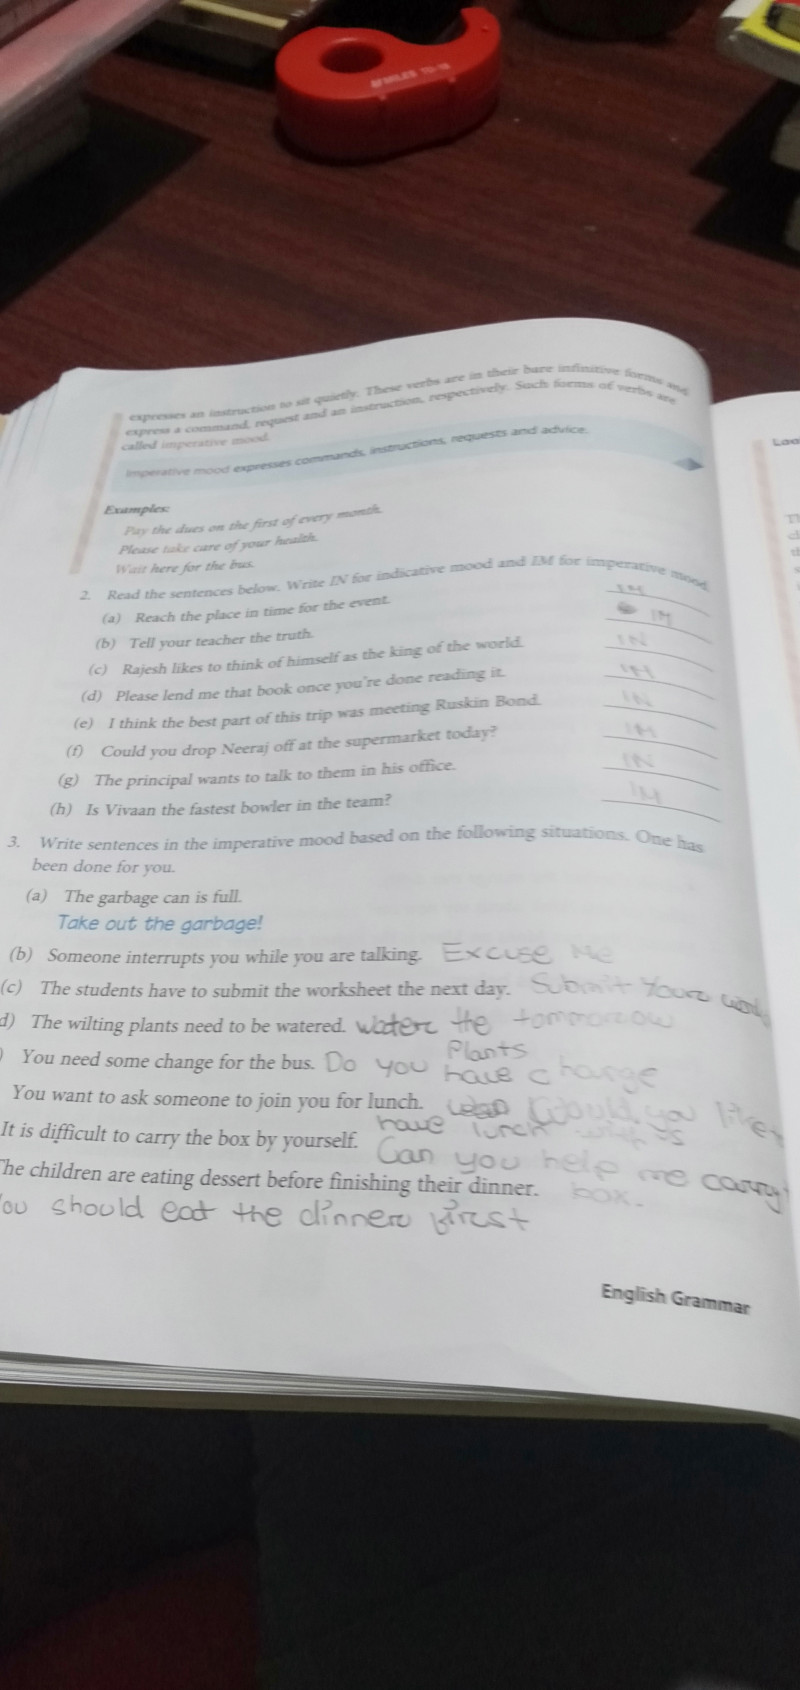 expresses an instruction to sit quietly. These verbs are in their bare infinitive forms and
express a command, request and an instruction, respectively. Such forms of verbs are
called imperative mood.
Imperative mood expresses commands, instructions, requests and advice.
Examples:
Pay the dues on the first of every month.
Please take care of your health.
Wait here for the bus.
2. Read the sentences below. Write IN for indicative mood and IM for imperative mood.
(a) Reach the place in time for the event. IM
(b) Tell your teacher the truth. IM
(c) Rajesh likes to think of himself as the king of the world. IN
(d) Please lend me that book once you're done reading it. IM
(e) I think the best part of this trip was meeting Ruskin Bond. IN
(f) Could you drop Neeraj off at the supermarket today? IM
(g) The principal wants to talk to them in his office. IN
(h) Is Vivaan the fastest bowler in the team? IM
3. Write sentences in the imperative mood based on the following situations. One has
been done for you.
(a) The garbage can is full.
Take out the garbage!
(b) Someone interrupts you while you are talking. Excuse Me
(c) The students have to submit the worksheet the next day. Submit Your work
d) The wilting plants need to be watered. Water the tommorow
Plants
) You need some change for the bus. Do you have change
You want to ask someone to join you for lunch. Would you like
have lunch with us
It is difficult to carry the box by yourself. Can you help me carry
The children are eating dessert before finishing their dinner. box.
You should eat the dinner first
English Grammar